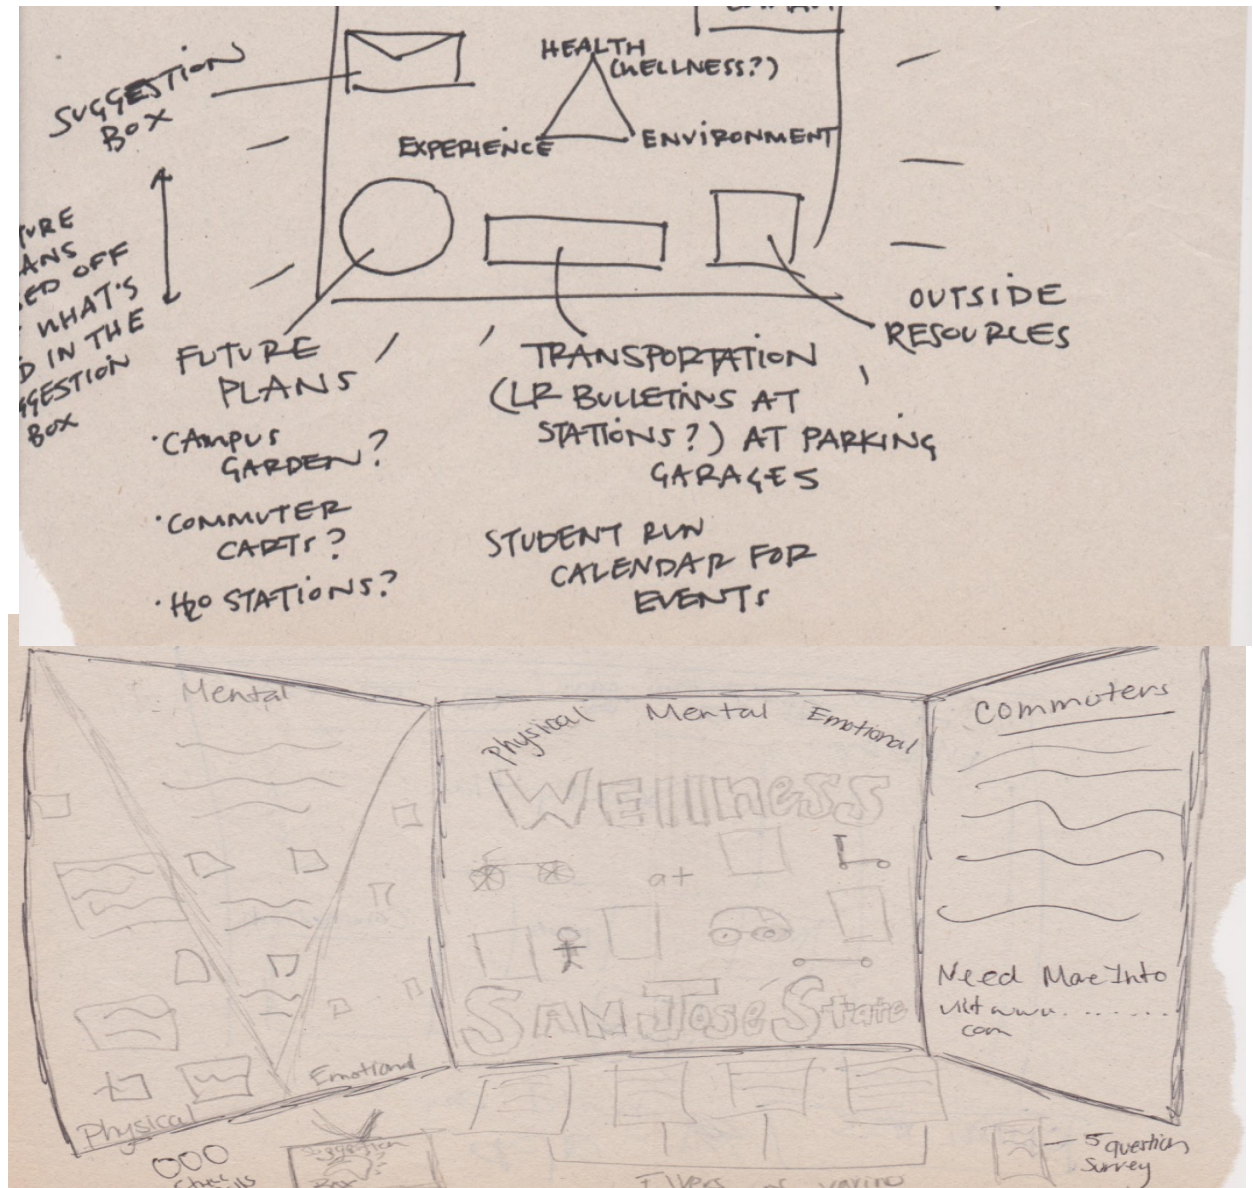 SUGGESTION
BOX
HEALTH
(WELLNESS?)
EXPERIENCE
ENVIRONMENT
OFF
WHAT'S
IN THE
BOX
FUTURE
PLANS
·CAMPUS
GARDEN?
·COMMUTER
CARTS?
·H2O STATIONS?
TRANSPORTATION
(LR BULLETINS AT
STATIONS?) AT PARKING
GARAGES
STUDENT RUN
CALENDAR FOR
EVENTS
OUTSIDE
RESOURCES
Mental
Emotional
Physical
Physical Mental Emotional
Wellness
at
San José State
Commuters
Need More Info
www.........
com
Suggestion
Box
Flyers
5 question
Survey